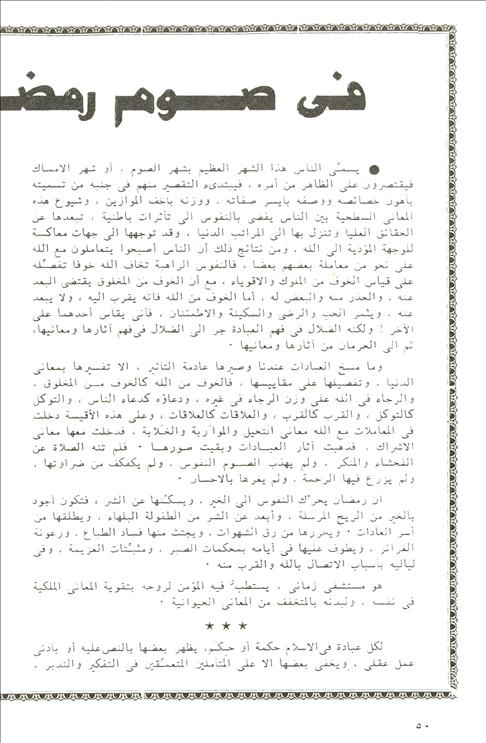 فى صـــوم رمضـ
● يسمّى الناس هذا الشهر العظيم بشهر الصوم ، أو شهر الامساك
فيقتصرون على الظاهر من أمره ، فيبتدىء التقصير منهم فى جنبه من تسميته
بأهون خصائصه ووصفه بأيسر صفاته . ووزنه بأخف الموازين ، وشيوع هذه
المعانى السطحية بين الناس يفضى بالنفوس الى تأثرات باطنية ، تبعدها عن
الحقائق العليا وتنزل بها الى المراتب الدنيا ، وقد توجهها الى جهات معاكسة
للوجهة المؤدية الى الله . ومن نتائج ذلك أن الناس أصبحوا يتعاملون مع الله
على نحو من معاملة بعضهم بعضا ، فالنفوس الراهبة تخاف الله خوفا تفصّله
على قياس الخوف من الملوك والاقوياء ، مع أن الخوف من المخلوق يقتضى البعد
عنه . والحذر منه والبغض له . أما الخوف من الله فانه يقرب اليه ، ولا يبعد
عنه . ويثمر الحب والرضى والسكينة والاطمئنان . فأنى يقاس أحدهما على
الآخر ! ولكنه الضلال فى فهم العبادة جر الى الضلال فى فهم آثارها ومعانيها،
ثم الى الحرمان من آثارها ومعانيها .
وما مسخ العبادات عندنا وصيرها عادمة التأثير ، الا تفسيرها بمعانى
الدنيا ، وتفصيلها على مقاييسها ، فالخوف من الله كالخوف مــن المخلوق ،
والرجاء فى الله على وزن الرجاء فى غيره ، ودعاؤه كدعاء الناس ، والتوكل
كالتوكل ، والقرب كالقرب ، والعلاقات كالعلاقات ، وعلى هذه الأقيسة دخلت
فى المعاملات مع الله معانى التحيل والمواربة والخلابة ، فدخلت معها معانى
الاشراك . فذهبت آثار العبـادات وبقيت صورهــا . فلم تنه الصلاة عن
الفحشاء والمنكر . ولم يهذب الصــوم النفوس . ولم يكفكف من ضراوتها ،
ولم يزرع فيها الرحمة . ولم يغرها بالاحسان .
ان رمضان يحرّك النفوس الى الخير . ويسكّنها عن الشر ، فتكون أجود
بالخير من الريح المرسلة . وأبعد عن الشر من الطفولة البلهاء . ويطلقها من
أسر العادات . ويحررها من رق الشهوات . ويجتث منها فساد الطباع . ورعونة
الغرائز . ويطوف عليها فى أيامه بمحكمات الصبر . ومثبّتات العزيمة . وفى
لياليه بأسباب الاتصال بالله والقرب منه .
هو مستشفى زمانى . يستطبّ فيه المؤمن لروحه بتقوية المعانى الملكية
فى نفسه . ولبدنه بالتخفف من المعانى الحيوانية .
★ ★ ★
لكل عبادة فى الاسلام حكمة أو حِكَم، يظهر بعضها بالنص عليه أو بأدنى
عمل عقلى . ويخفى بعضها الا على المتأملين المتعمّقين فى التفكير والتدبر ،
٥٠